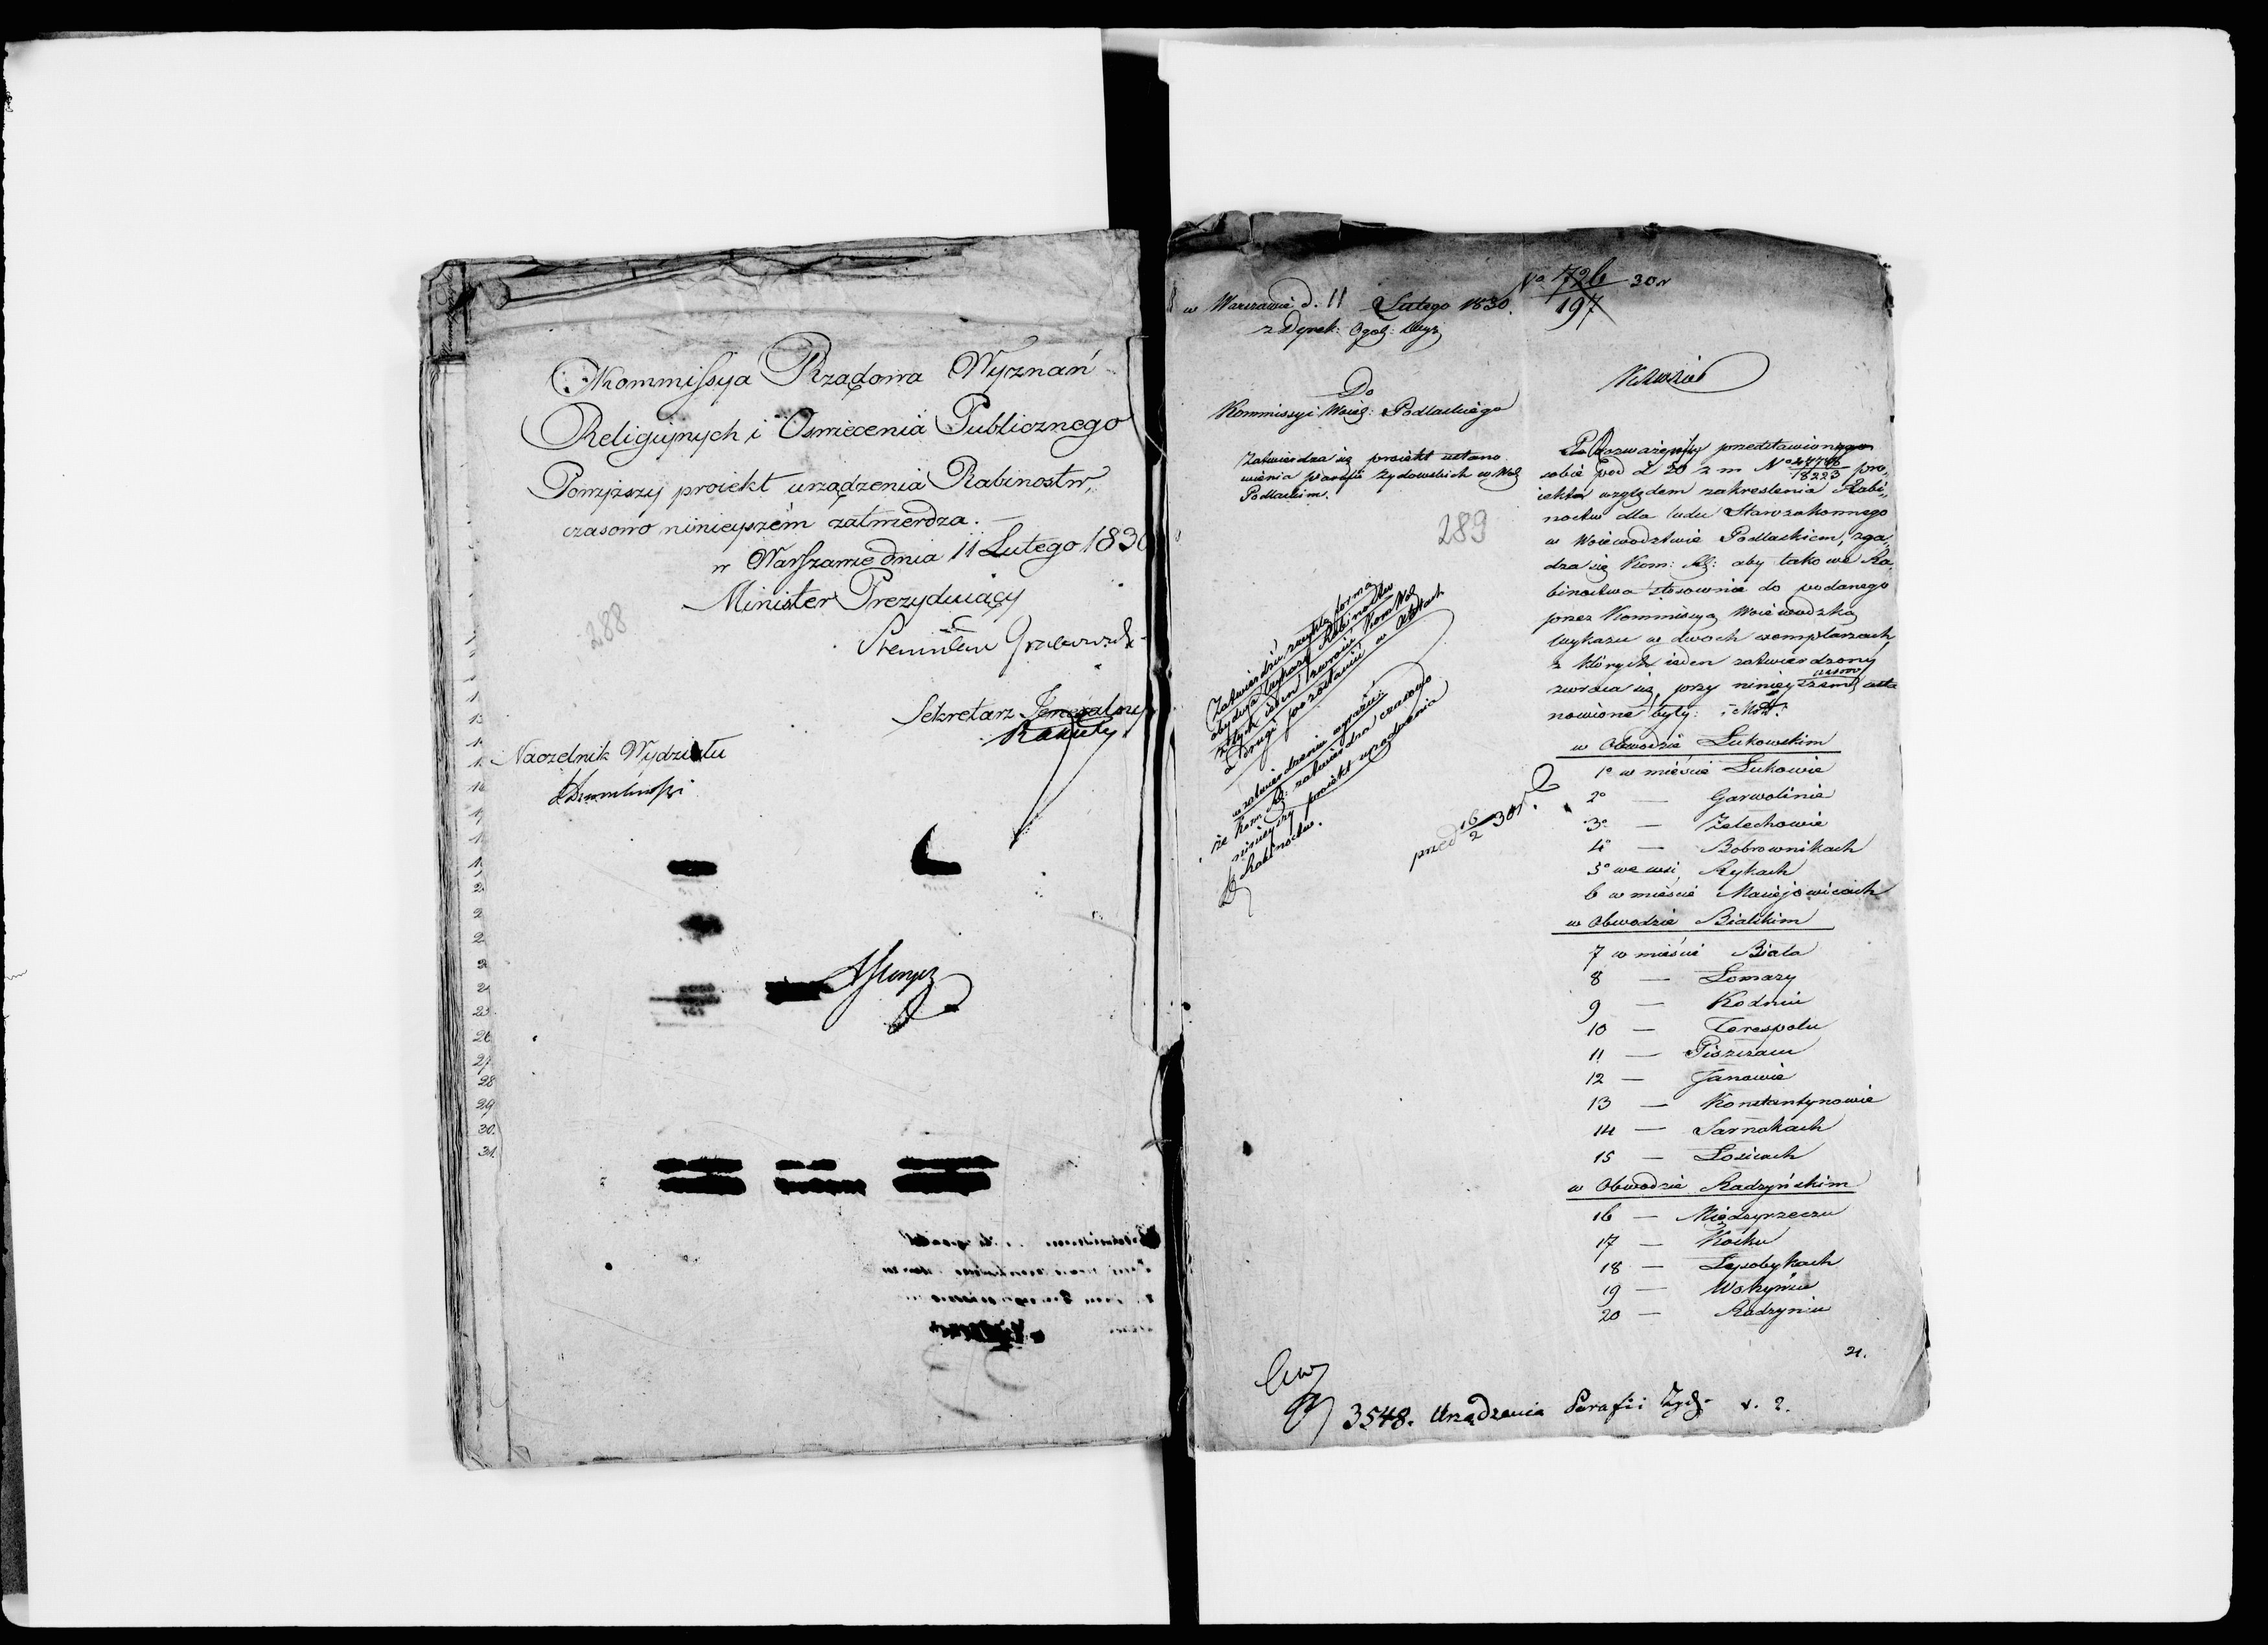 Kommissya Rządowa Wyznań
Religijnych i Oświecenia Publicznego
Powyższy proiekt urządzenia Rabinostw,
czasowo ninieyszém zatwierdza.
w Warszawie dnia 11 Lutego 1830
Minister Prezyduiący
Stanisław Grabowski
Sekretarz Jeneralny
Naczelnik Wydziału
288
23.
26
27.
28
29
30.
31.
w Warszawie d. 11 Lutego 1830.
No 726 30 r
197
z Dyrek: Ogól: Wyz
Do
Kommissyi Woiew: Podlaskiego
Zatwierdza się proiekt ustano
wienia parafii żydowskich w Wdz
Podlaskim.
289
Zatwierdzić zwykłą formą
obydwa wykazy Rabinostw
z tych ieden zwrócić Kom Wdz
a drugi pozostawić w Aktach
w zatwierdzeniu wyrazić:
że Kom Rz: zatwierdza czasowo
ninieyszy proiekt urządzenia
Rabinostw.
16/2 30 r.
Rozważywszy przedstawiony
sobie pod d. 20 z m No 8223 pro„
iekt względem zakreslenia Rabi„
nostw dla ludu Starozakonnego
w Woiewodztwie Podlaskiem, zga„
dza się Kom: Rz: aby takowe Ra„
binostwa stosownie do podanego
przez Kommissyą Woiewodzką
wykazu w dwoch exemplarzach,
z których ieden zatwierdzony
zwraca się przy ninieyszem usta
nowione były:
w Obwodzie Łukowskim
1o w mieście Łukowie
2o — Garwolinie
3o — Żelechowie
4o — Bobrownikach
5o we wsi Rykach
6 w mieście Maciejowicach
w Obwodzie Bialskim
7 w mieście Biala
8 — Lomazy
9 — Kodniu
10 — Terespolu
11 — Piszczacu
12 — Janowie
13 — Konstantynowie
14 — Sarnakach
15 — Łosicach
w Obwodzie Radzyńskim
16 — Międzyrzeczu
17 — Kocku
18 — Łysobykach
19 — Wohyniu
20 — Radzyniu
21.
3548. Urządzenia Parafii Żyd. v. 2.